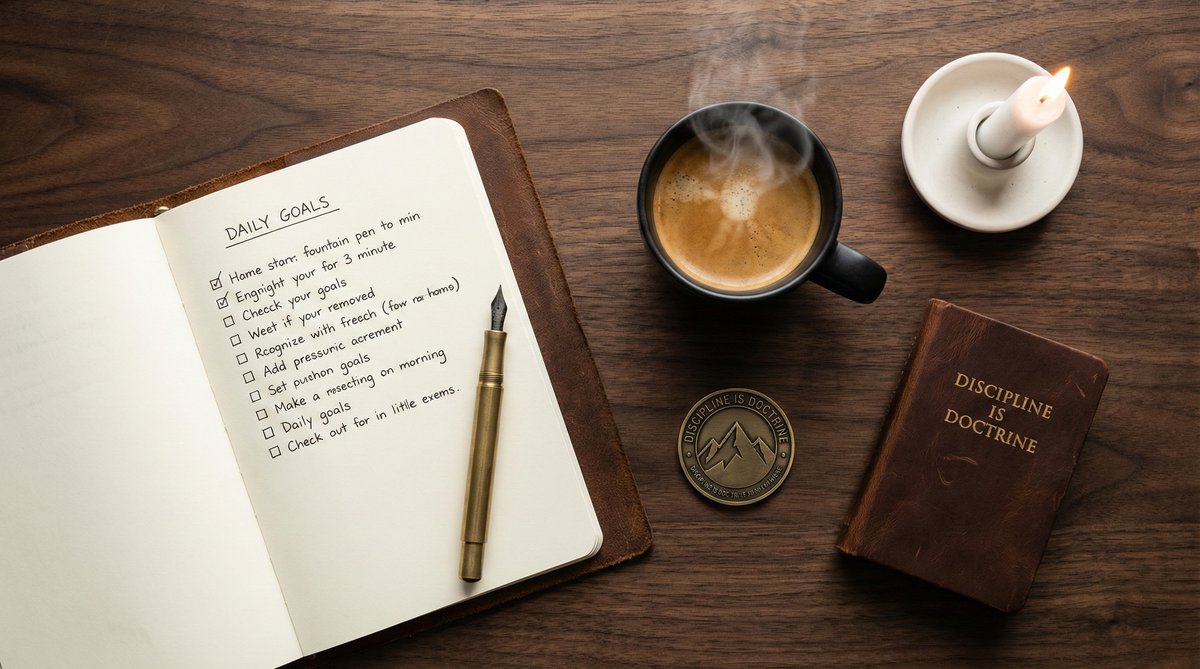 DAILY GOALS
Hame starr: fountain pen to min
Engright your for 3 minute
Check your goals
Weet if your removed
Rcognize with freech (fow rax homs)
Add pressuric acrement
Set pushon goals
Make a rosecting on morning
Daily goals
Check out for in little exems.
DISCIPLINE IS DOCTRINE
DISCIPLINE
IS
DOCTRINE